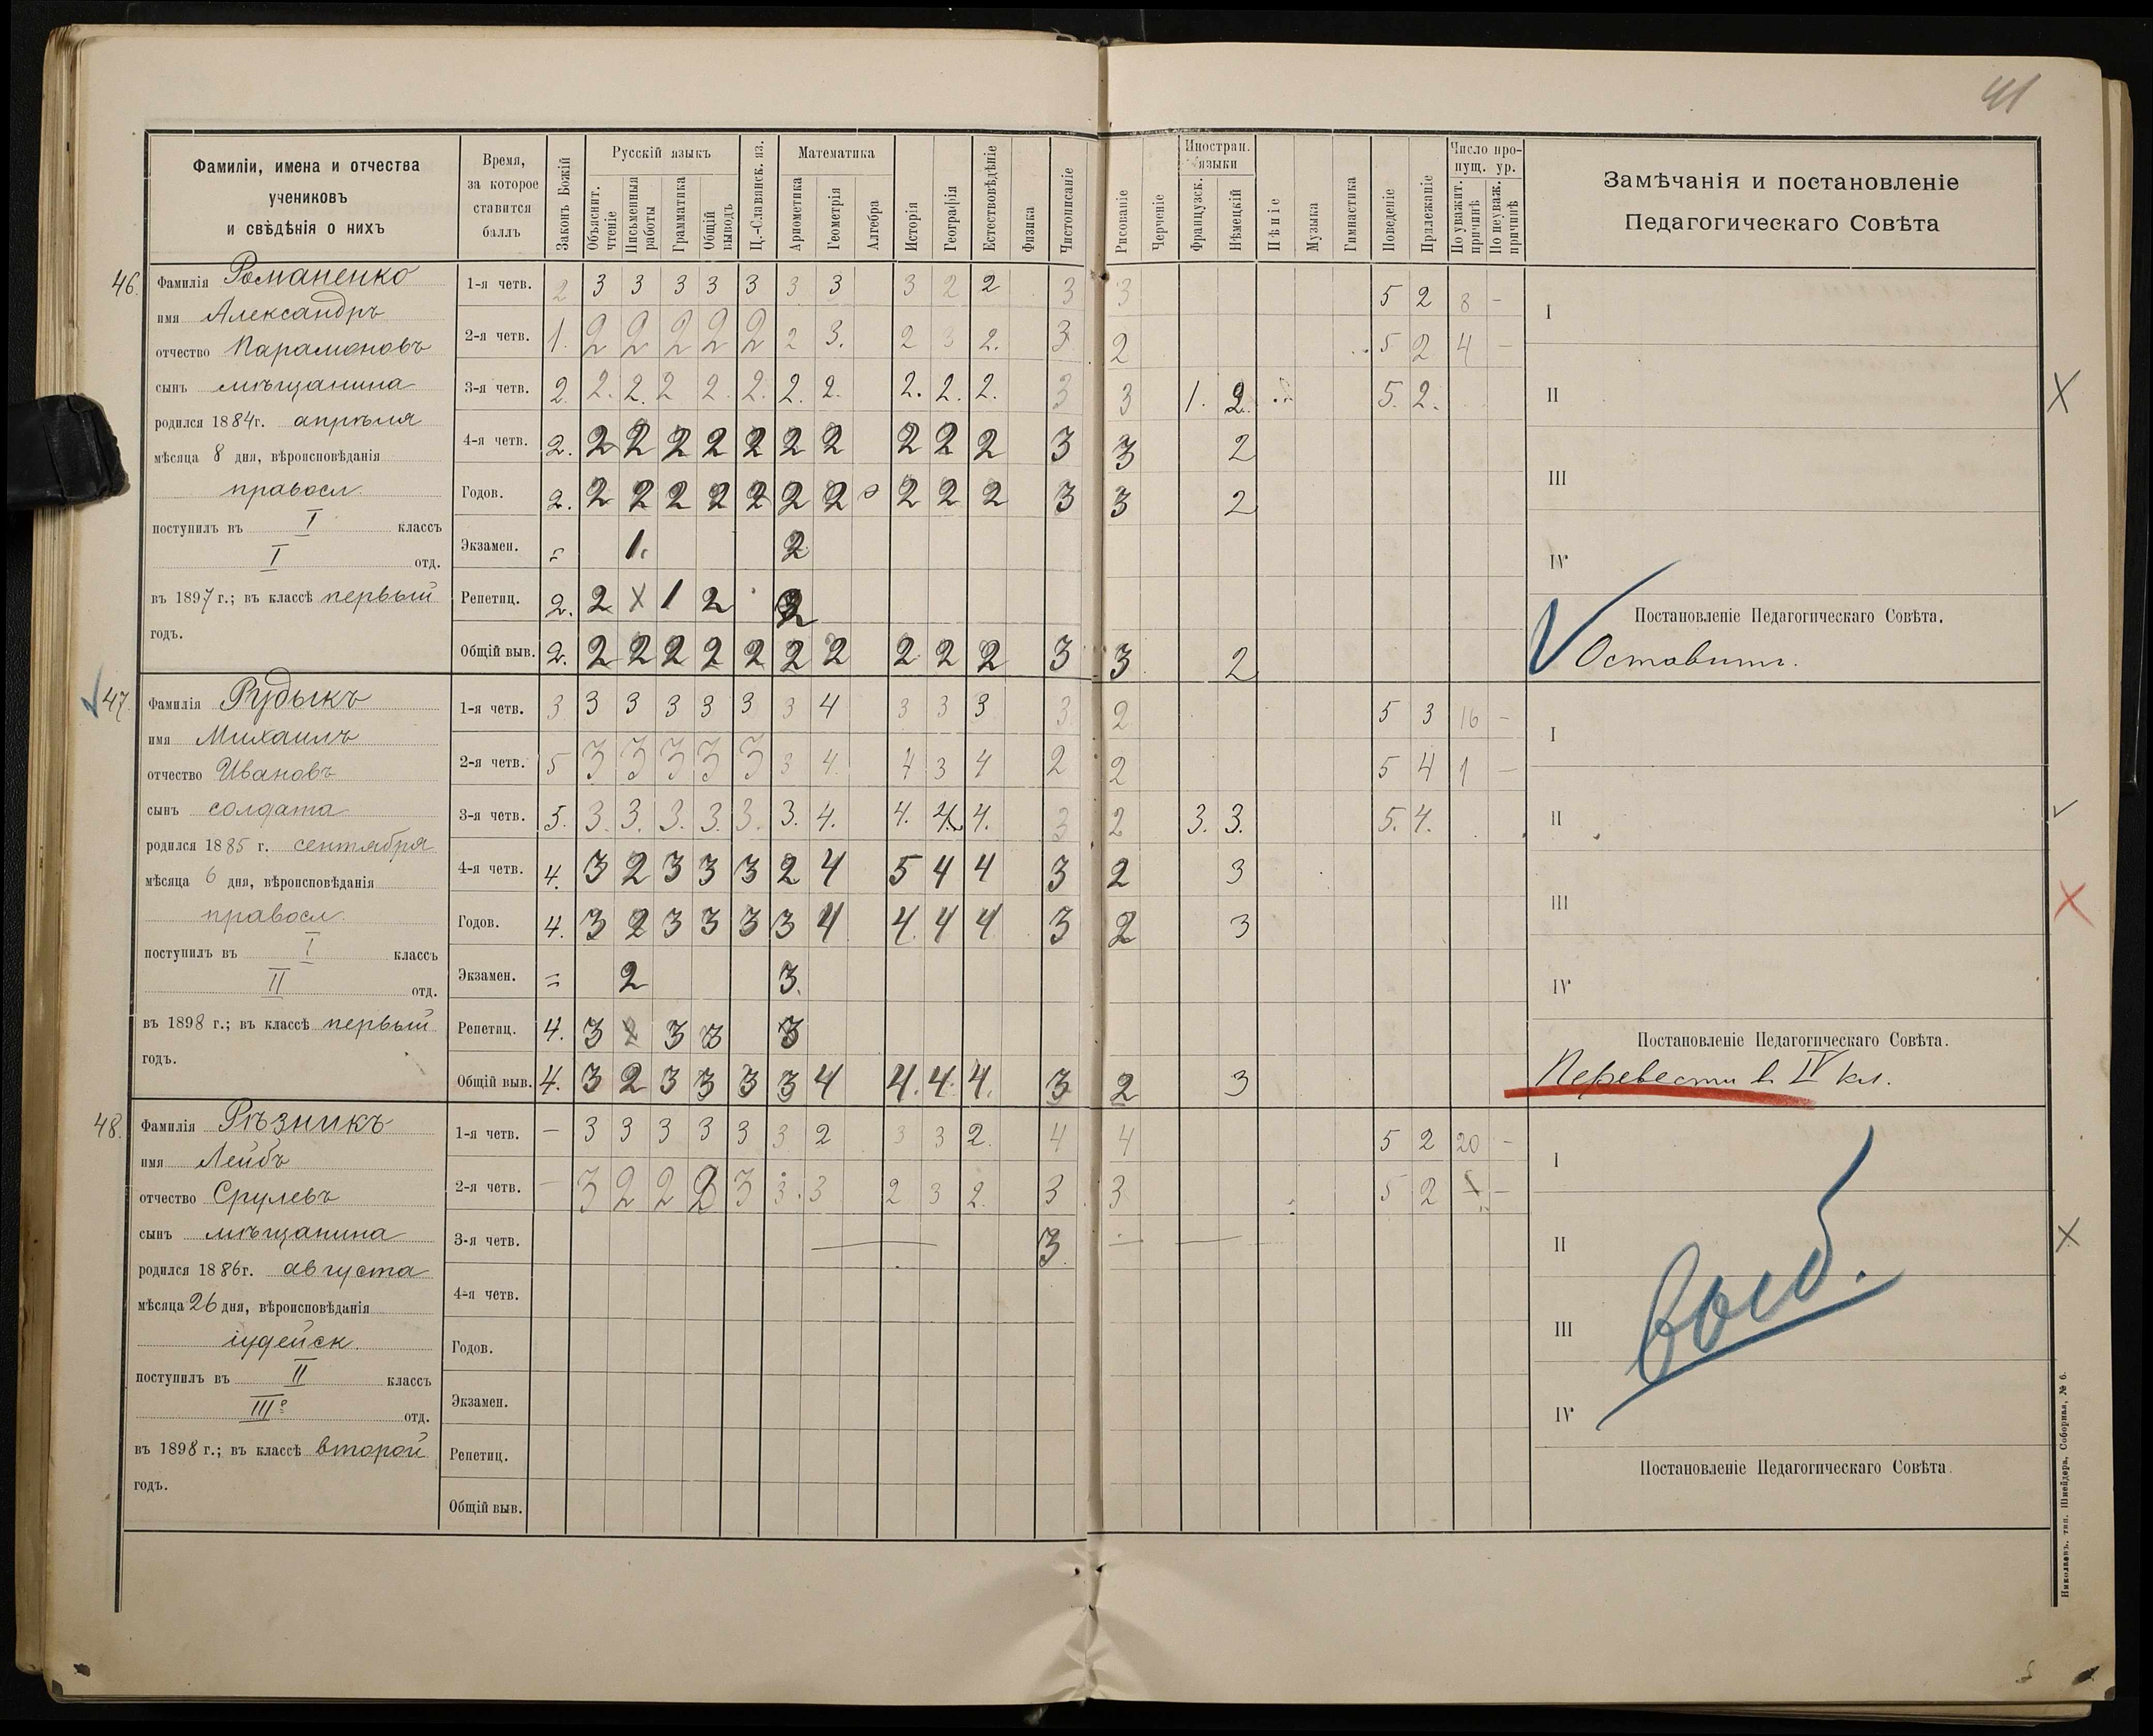 41
Фамиліи, имена и отчества
учениковъ
и свѣдѣнія о нихъ
Время,
за которое
ставится
баллъ
Законъ Божій
Русскій языкъ
Объяснит. чтеніе
Письменныя работы
Грамматика
Общій выводъ
Ц.-Славянск. яз.
Математика
Ариѳметика
Геометрія
Алгебра
Исторія
Географія
Естествовѣдѣніе
Физика
Чистописаніе
Рисованіе
Черченіе
Иностран. языки
Французск.
Нѣмецкій
Пѣніе
Музыка
Гимнастика
Поведеніе
Прилежаніе
Число пропущ. ур.
По уважит. причинѣ
По неуваж. причинѣ
Замѣчанія и постановленіе
Педагогическаго Совѣта
46.
Фамилія Романенко
имя Александръ
отчество Парамоновъ
сынъ мѣщанина
родился 1884г. апрѣля
мѣсяца 8 дня, вѣроисповѣданія
правосл.
поступилъ въ I классъ
I отд.
въ 1897 г.; въ классѣ первый
годъ.
1-я четв. 2 3 3 3 3 3 3 3 3 2 2 3 3 5 2 8 -
2-я четв. 1. 2 2 2 2 2 2 3. 2 3 2. 3 2 5 2 4 -
3-я четв. 2. 2. 2. 2 2. 2. 2. 2. 2. 2. 2. 3 3 1. 2. 5. 2.
4-я четв. 2. 2 2 2 2 2 2 2 2 2 2 3 3 2
Годов. 2. 2 2 2 2 2 2 2 2 2 2 3 3 2
Экзамен. = 1. 2
Репетиц. 2. 2 х 1 2 2
Общій выв. 2. 2 2 2 2 2 2 2 2 2 2 3 3 2
I
II
III
IV
Постановленіе Педагогическаго Совѣта.
Оставить.
47.
Фамилія Рудыкъ
имя Михаилъ
отчество Ивановъ
сынъ солдата
родился 1885 г. сентября
мѣсяца 6 дня, вѣроисповѣданія
правосл.
поступилъ въ I классъ
II отд.
въ 1898 г.; въ классѣ первый
годъ.
1-я четв. 3 3 3 3 3 3 3 4 3 3 3 3 2 5 3 16 -
2-я четв. 5 3 3 3 3 3 3 4 4 3 4 2 2 5 4 1 -
3-я четв. 5. 3. 3. 3. 3. 3. 3. 4. 4. 4. 4. 3 2 3. 3. 5. 4.
4-я четв. 4. 3 2 3 3 3 2 4 5 4 4 3 2 3
Годов. 4. 3 2 3 3 3 3 4 4 4 4 3 2 3
Экзамен. = 2 3.
Репетиц. 4. 3 3 3 3
Общій выв. 4. 3 2 3 3 3 3 4 4. 4. 4. 3 2 3
I
II
III
IV
Постановленіе Педагогическаго Совѣта.
Перевести в IV кл.
48.
Фамилія Рѣзникъ
имя Лейбъ
отчество Срулевъ
сынъ мѣщанина
родился 1886г. августа
мѣсяца 26 дня, вѣроисповѣданія
іудейск.
поступилъ въ II классъ
IIIе отд.
въ 1898 г.; въ классѣ второй
годъ.
1-я четв. - 3 3 3 3 3 3 2 3 3 2. 4 4 5 2 20 -
2-я четв. - 3 2 2 2 3 3. 3 2 3 2. 3 3 5 2 -
3-я четв. 3
4-я четв.
Годов.
Экзамен.
Репетиц.
Общій выв.
I
II
III
IV
выб.
Постановленіе Педагогическаго Совѣта.
Николаевъ, тип. Шнейдера, Соборная, № 6.